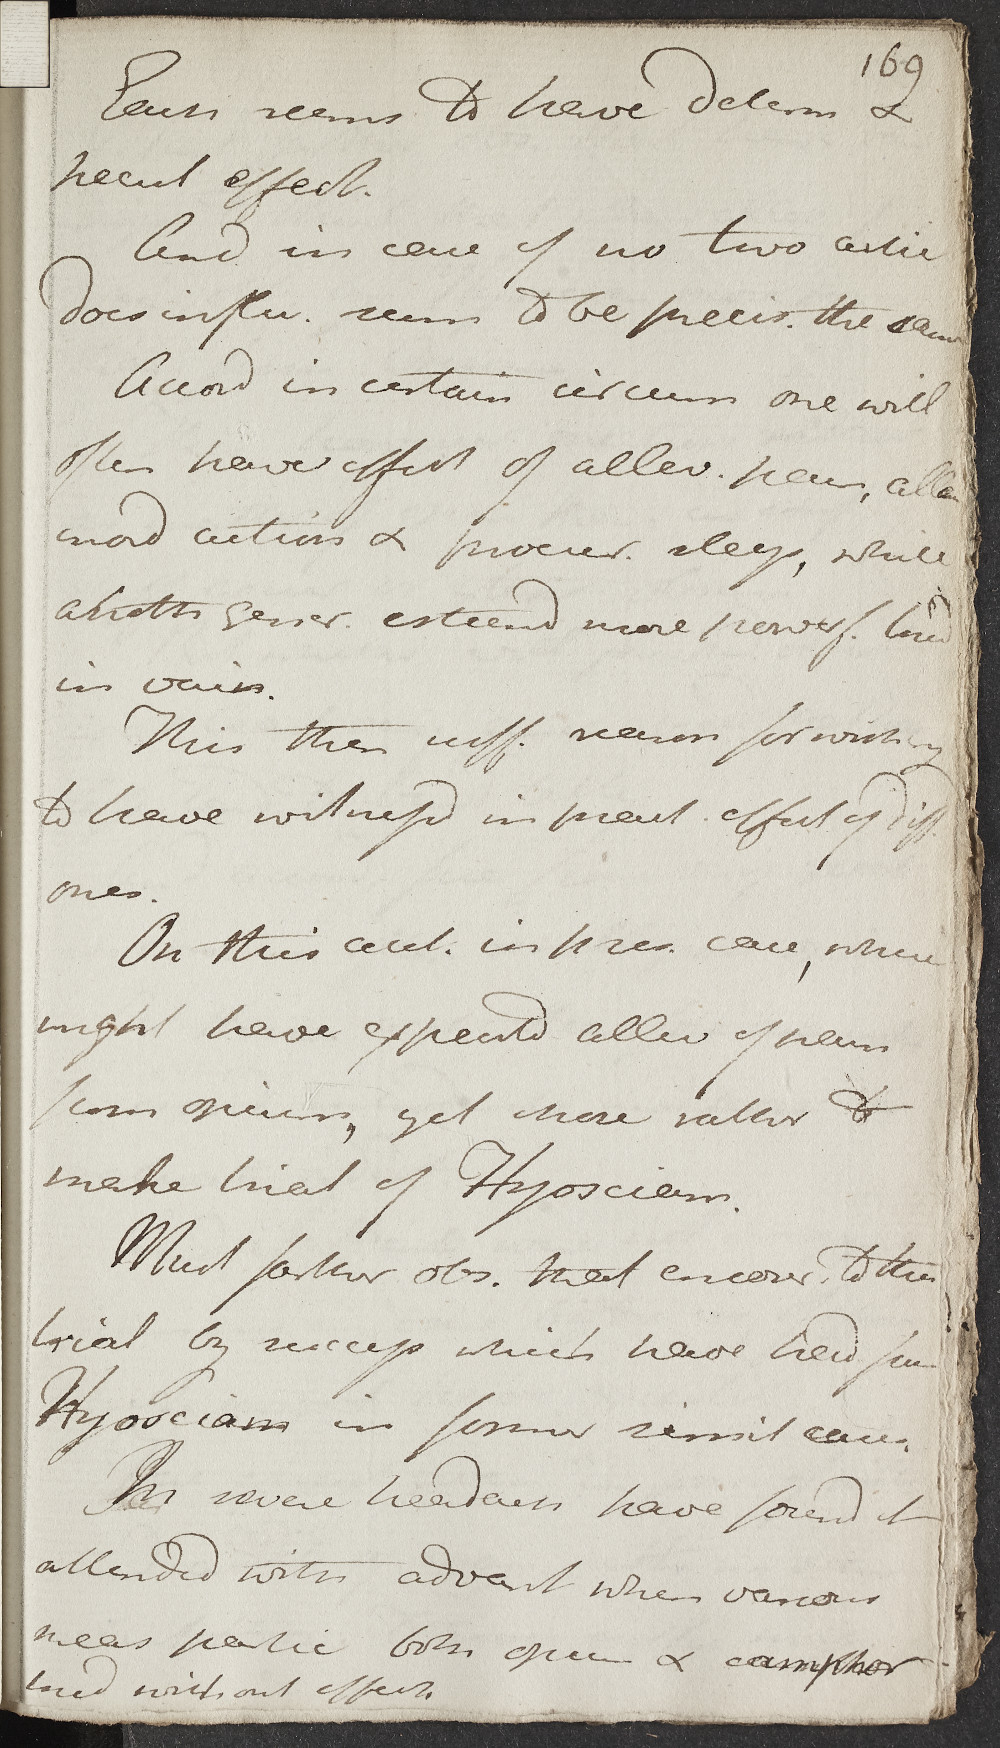 169
Each seems to have determ &
pecul effect.
And in case of no two artic
does influ. seem to be precis. the same
Accord in certain circum one will
often have effect of allev. pain, allay
inord action & procur. sleep, while
anoth gener. esteemd more powerf. tried
in vain.
This then suff. reason for wishing
to have witnessd in pract. effect of diff.
ones.
On this acct. in pres. case, where
might have expectd allev of pain
from opium, yet chose rather to
make trial of Hyosciam.
Must farther obs. that encour. to this
trial by success which have had from
Hyosciam in former simil cases.
In severe headach have found it
attended with advant when various
meas partic both opium & camphor
tried without effect.